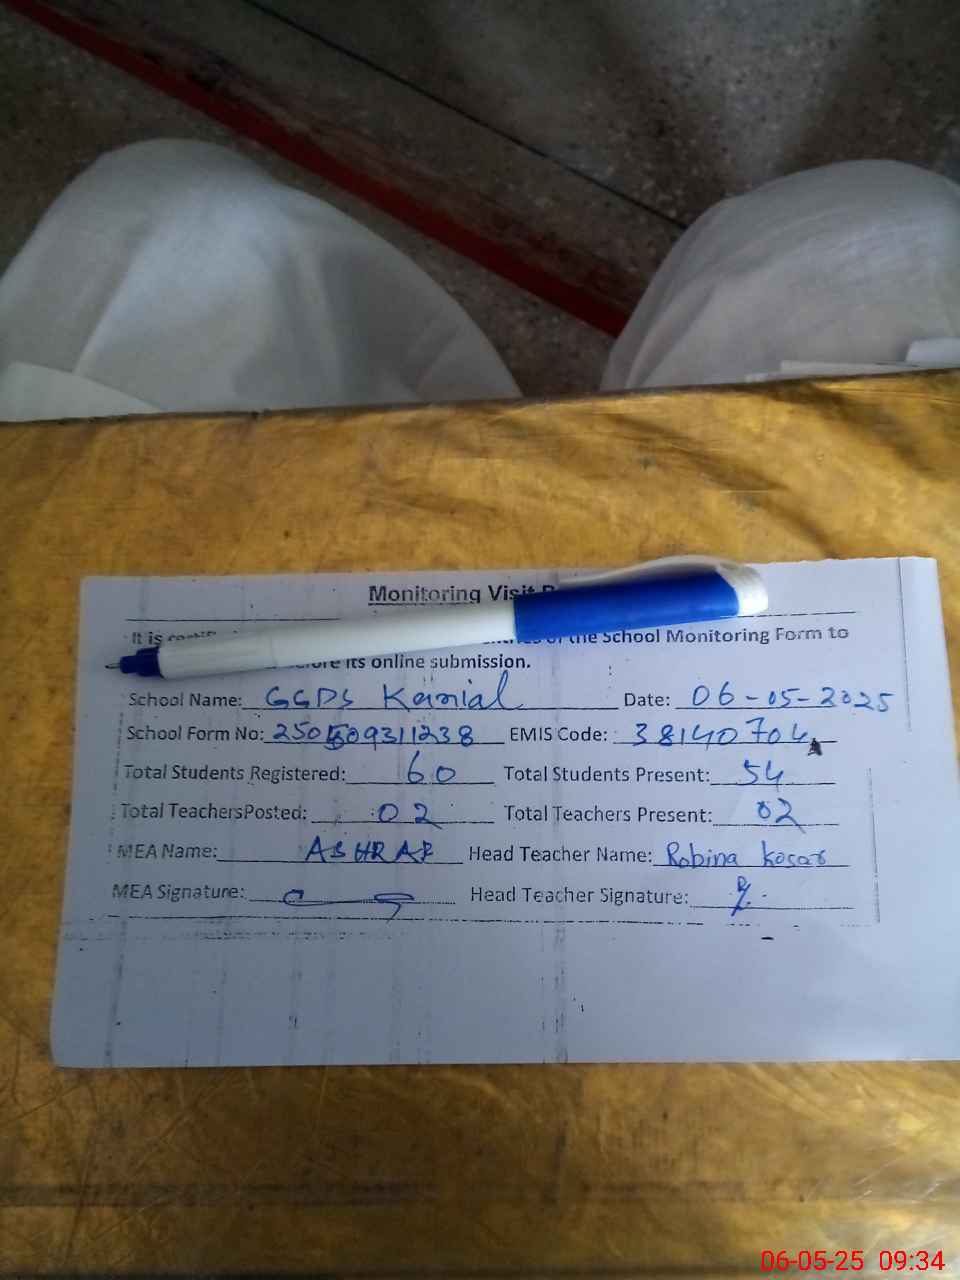 Monitoring Visit
It is of the School Monitoring Form to
before its online submission.
School Name: GGPS Kanial Date: 06-05-2025
School Form No: 250509311238 EMIS Code: 38140704
Total Students Registered: 60 Total Students Present: 54
Total TeachersPosted: 02 Total Teachers Present: 02
MEA Name: ASHRAF Head Teacher Name: Robina Kosar
MEA Signature: Head Teacher Signature:
06-05-25 09:34